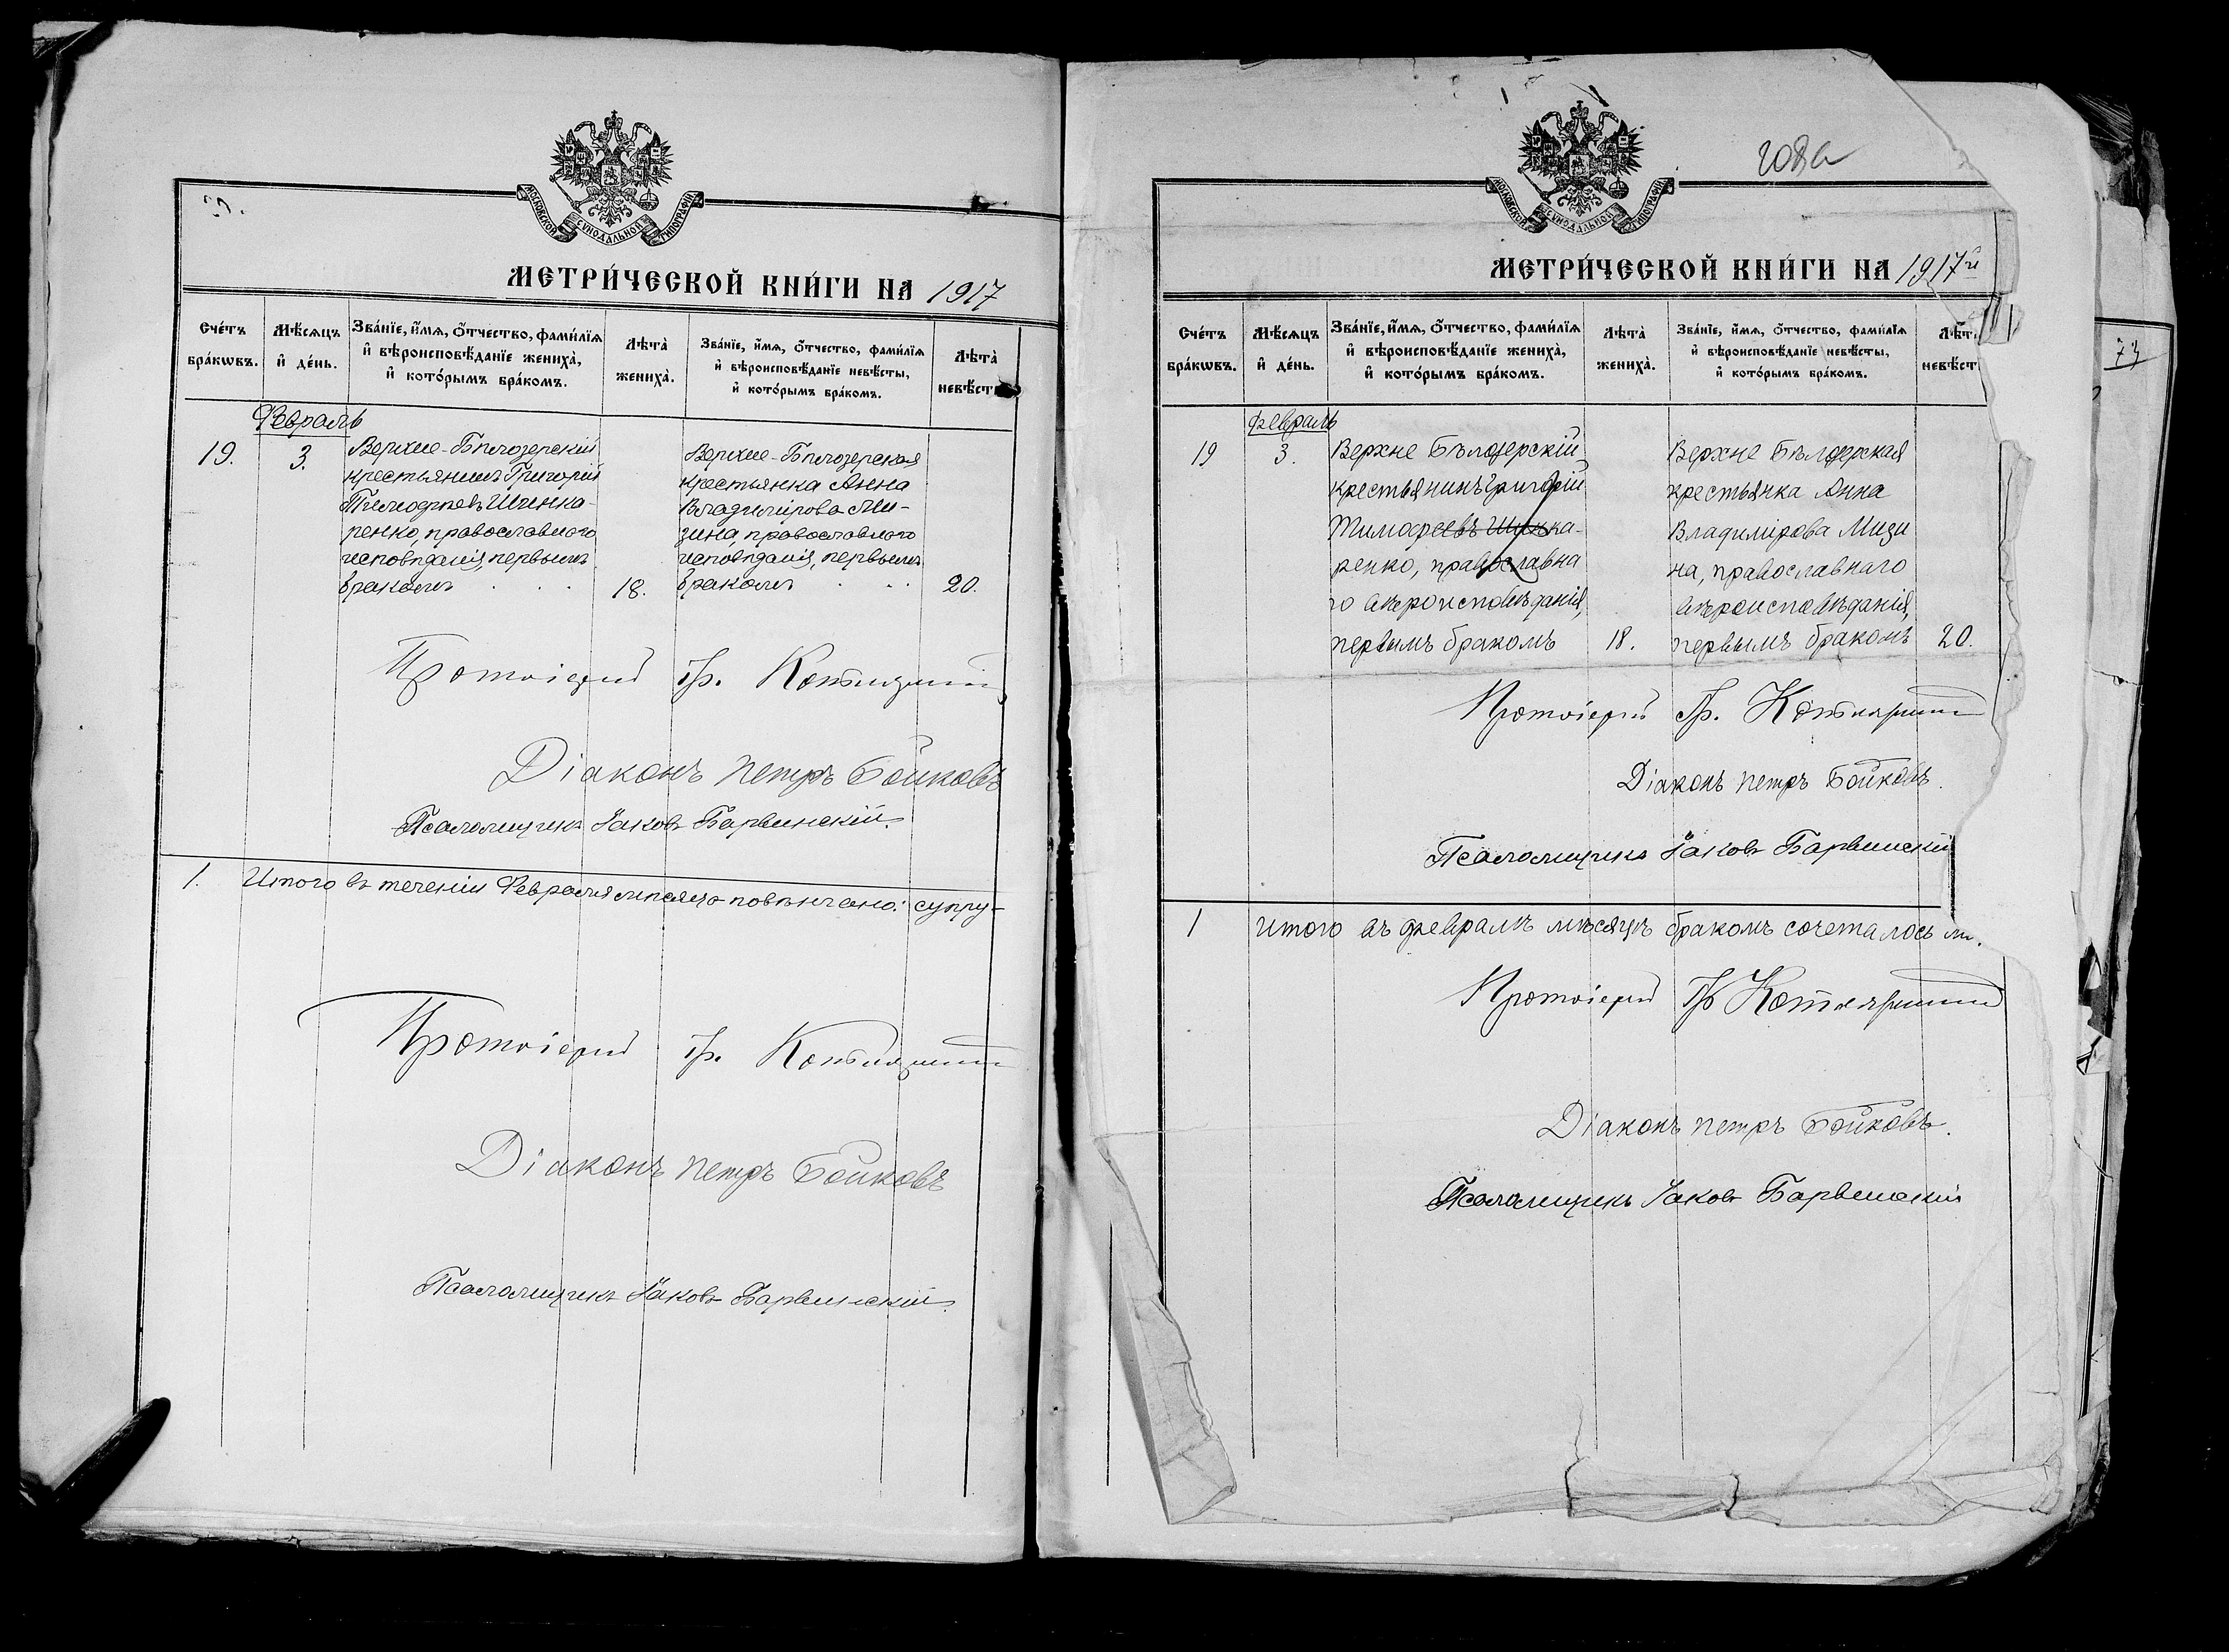 МОСКОВСКОЙ СѴНОДАЛЬНОЙ ТИПОГРАФІИ
МЕТРИ́ЧЕСКОЙ КНИ́ГИ НА 1917
Сче́тъ бра́кѡвъ.
Мѣ́сѧцъ и҆ де́нь.
Зва́нїе, и҆́мѧ, ѻ҆́тчество, фами́лїѧ
и҆ вѣроисповѣ́данїе жениха̀,
и҆ кото́рымъ бра́комъ.
Лѣ́та̀ жениха̀.
Зва́нїе, и҆́мѧ, ѻ҆́тчество, фами́лїѧ
и҆ вѣроисповѣ́данїе невѣ́сты,
и҆ кото́рымъ бра́комъ.
Лѣ́та̀
невѣ́ст
Февраль
19. 3.
Верхне-Бѣлозерскій
крестьянинъ Григорій
Тимофеевъ Шинка-
ренко, православного
исповѣданія, первымъ
бракомъ . . . 18.
Верхне-Бѣлозерская
крестьянка Анна
Владимірова Ми-
зина, православного
исповѣданія, первымъ
бракомъ . . . 20.
Протоіерей Гр.
Діаконъ Петръ Бойковъ
Псаломщикъ Іаковъ Барвинскій.
1. Итого въ теченіи Февраля мѣсяца повѣнчано: супру-
Протоіерей Гр.
Діаконъ Петръ Бойковъ
Псаломщикъ Іаковъ Барвинскій.
МОСКОВСКОЙ СѴНОДАЛЬНОЙ ТИПОГРАФІИ
МЕТРИ́ЧЕСКОЙ КНИ́ГИ НА 1917
Сче́тъ бра́кѡвъ.
Мѣ́сѧцъ и҆ де́нь.
Зва́нїе, и҆́мѧ, ѻ҆́тчество, фами́лїѧ
и҆ вѣроисповѣ́данїе жениха̀,
и҆ кото́рымъ бра́комъ.
Лѣ́та̀ жениха̀.
Зва́нїе, и҆́мѧ, ѻ҆́тчество, фами́лїѧ
и҆ вѣроисповѣ́данїе невѣ́сты,
и҆ кото́рымъ бра́комъ.
Лѣ́т
невѣ́ст
февраль
19 3.
Верхне Бѣлозерскій
крестьянинъ Григорій
Тимофеевъ Шинка-
ренко, православна
го вѣроисповѣданія,
первымъ бракомъ 18.
Верхне Бѣлозерская
крестьянка Анна
Владимірова Мизи
на, православнаго
вѣроисповѣданія,
первымъ бракомъ 20.
Протоіерей Гр.
Діаконъ Петръ Бойковъ.
Псаломщикъ Іаковъ Барвинскій
1 Итого въ февралѣ мѣсяцѣ бракомъ сочеталось
Протоіерей Гр
Діаконъ Петръ Бойковъ.
Псаломщикъ Іаковъ Барвинскій